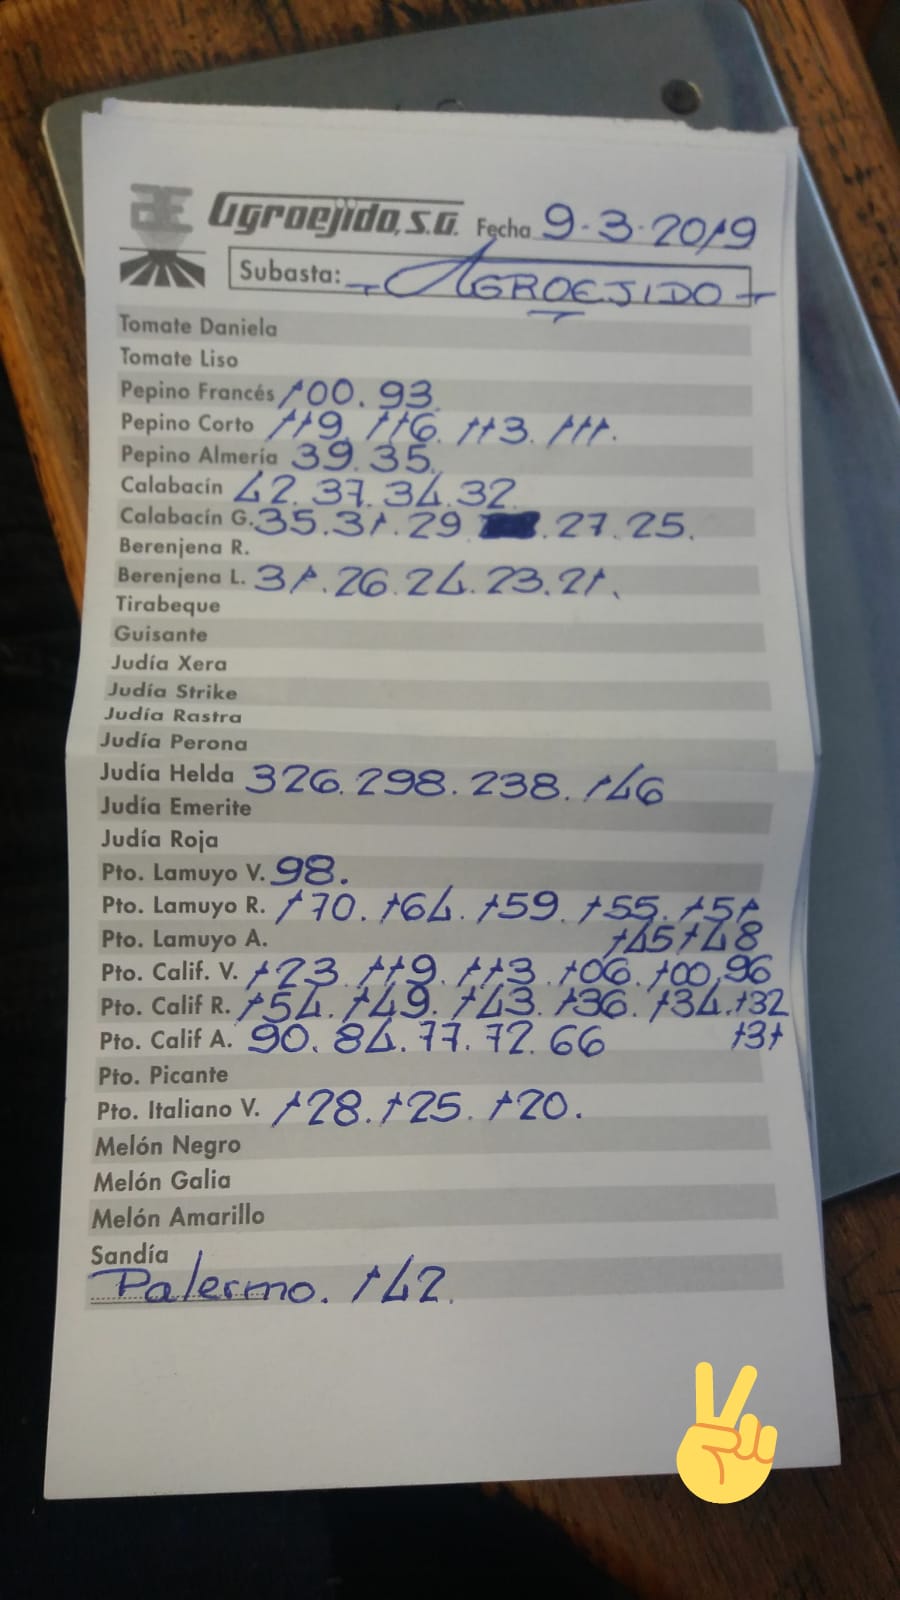 Agroejido, S.A. Fecha 9-3-2019
Subasta: AGROEJIDO
Tomate Daniela
Tomate Liso
Pepino Francés 100. 93.
Pepino Corto 119. 116. 113. 111.
Pepino Almería 39. 35.
Calabacín 42. 37. 34. 32.
Calabacín G. 35. 31. 29. . 27. 25.
Berenjena R.
Berenjena L. 31. 26. 24. 23. 21.
Tirabeque
Guisante
Judía Xera
Judía Strike
Judía Rastra
Judía Perona
Judía Helda 326. 298. 238. 146
Judía Emerite
Judía Roja
Pto. Lamuyo V. 98.
Pto. Lamuyo R. 170. 164. 159. 155. 151
Pto. Lamuyo A. 145 148
Pto. Calif. V. 123. 119. 113. 106. 100. 96
Pto. Calif R. 154. 149. 143. 136. 134. 132
Pto. Calif A. 90. 84. 77. 72. 66 131
Pto. Picante
Pto. Italiano V. 128. 125. 120.
Melón Negro
Melón Galia
Melón Amarillo
Sandía
Palermo. 142.